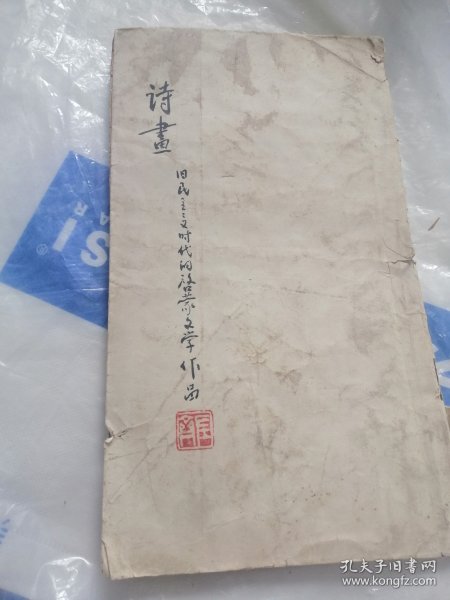 诗畫
旧民主主义时代的启蒙文学作品
SI
®
AR
孔夫子旧书网
www.kongfz.com